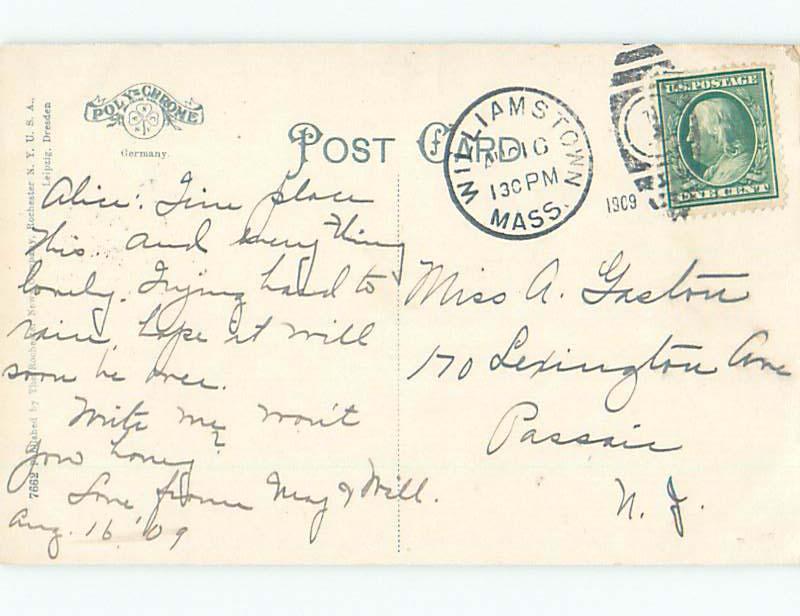 POLY-CHROME
Germany.
POST CARD
WILLIAMSTOWN
AUG 16
130 PM
MASS.
1909
U.S. POSTAGE
ONE CENT
7662 Published by The Rochester News Company, Rochester N. Y. U. S. A.,
Leipzig, Dresden
Alice: Fine place
this. and everything
lovely. Trying hard to
rain, hope it will
soon be over.
Write me, won't
you honey?
Love from May & Will.
Aug. 16, '09
Miss A. Gaston
170 Lexington Ave
Passaic
N. J.